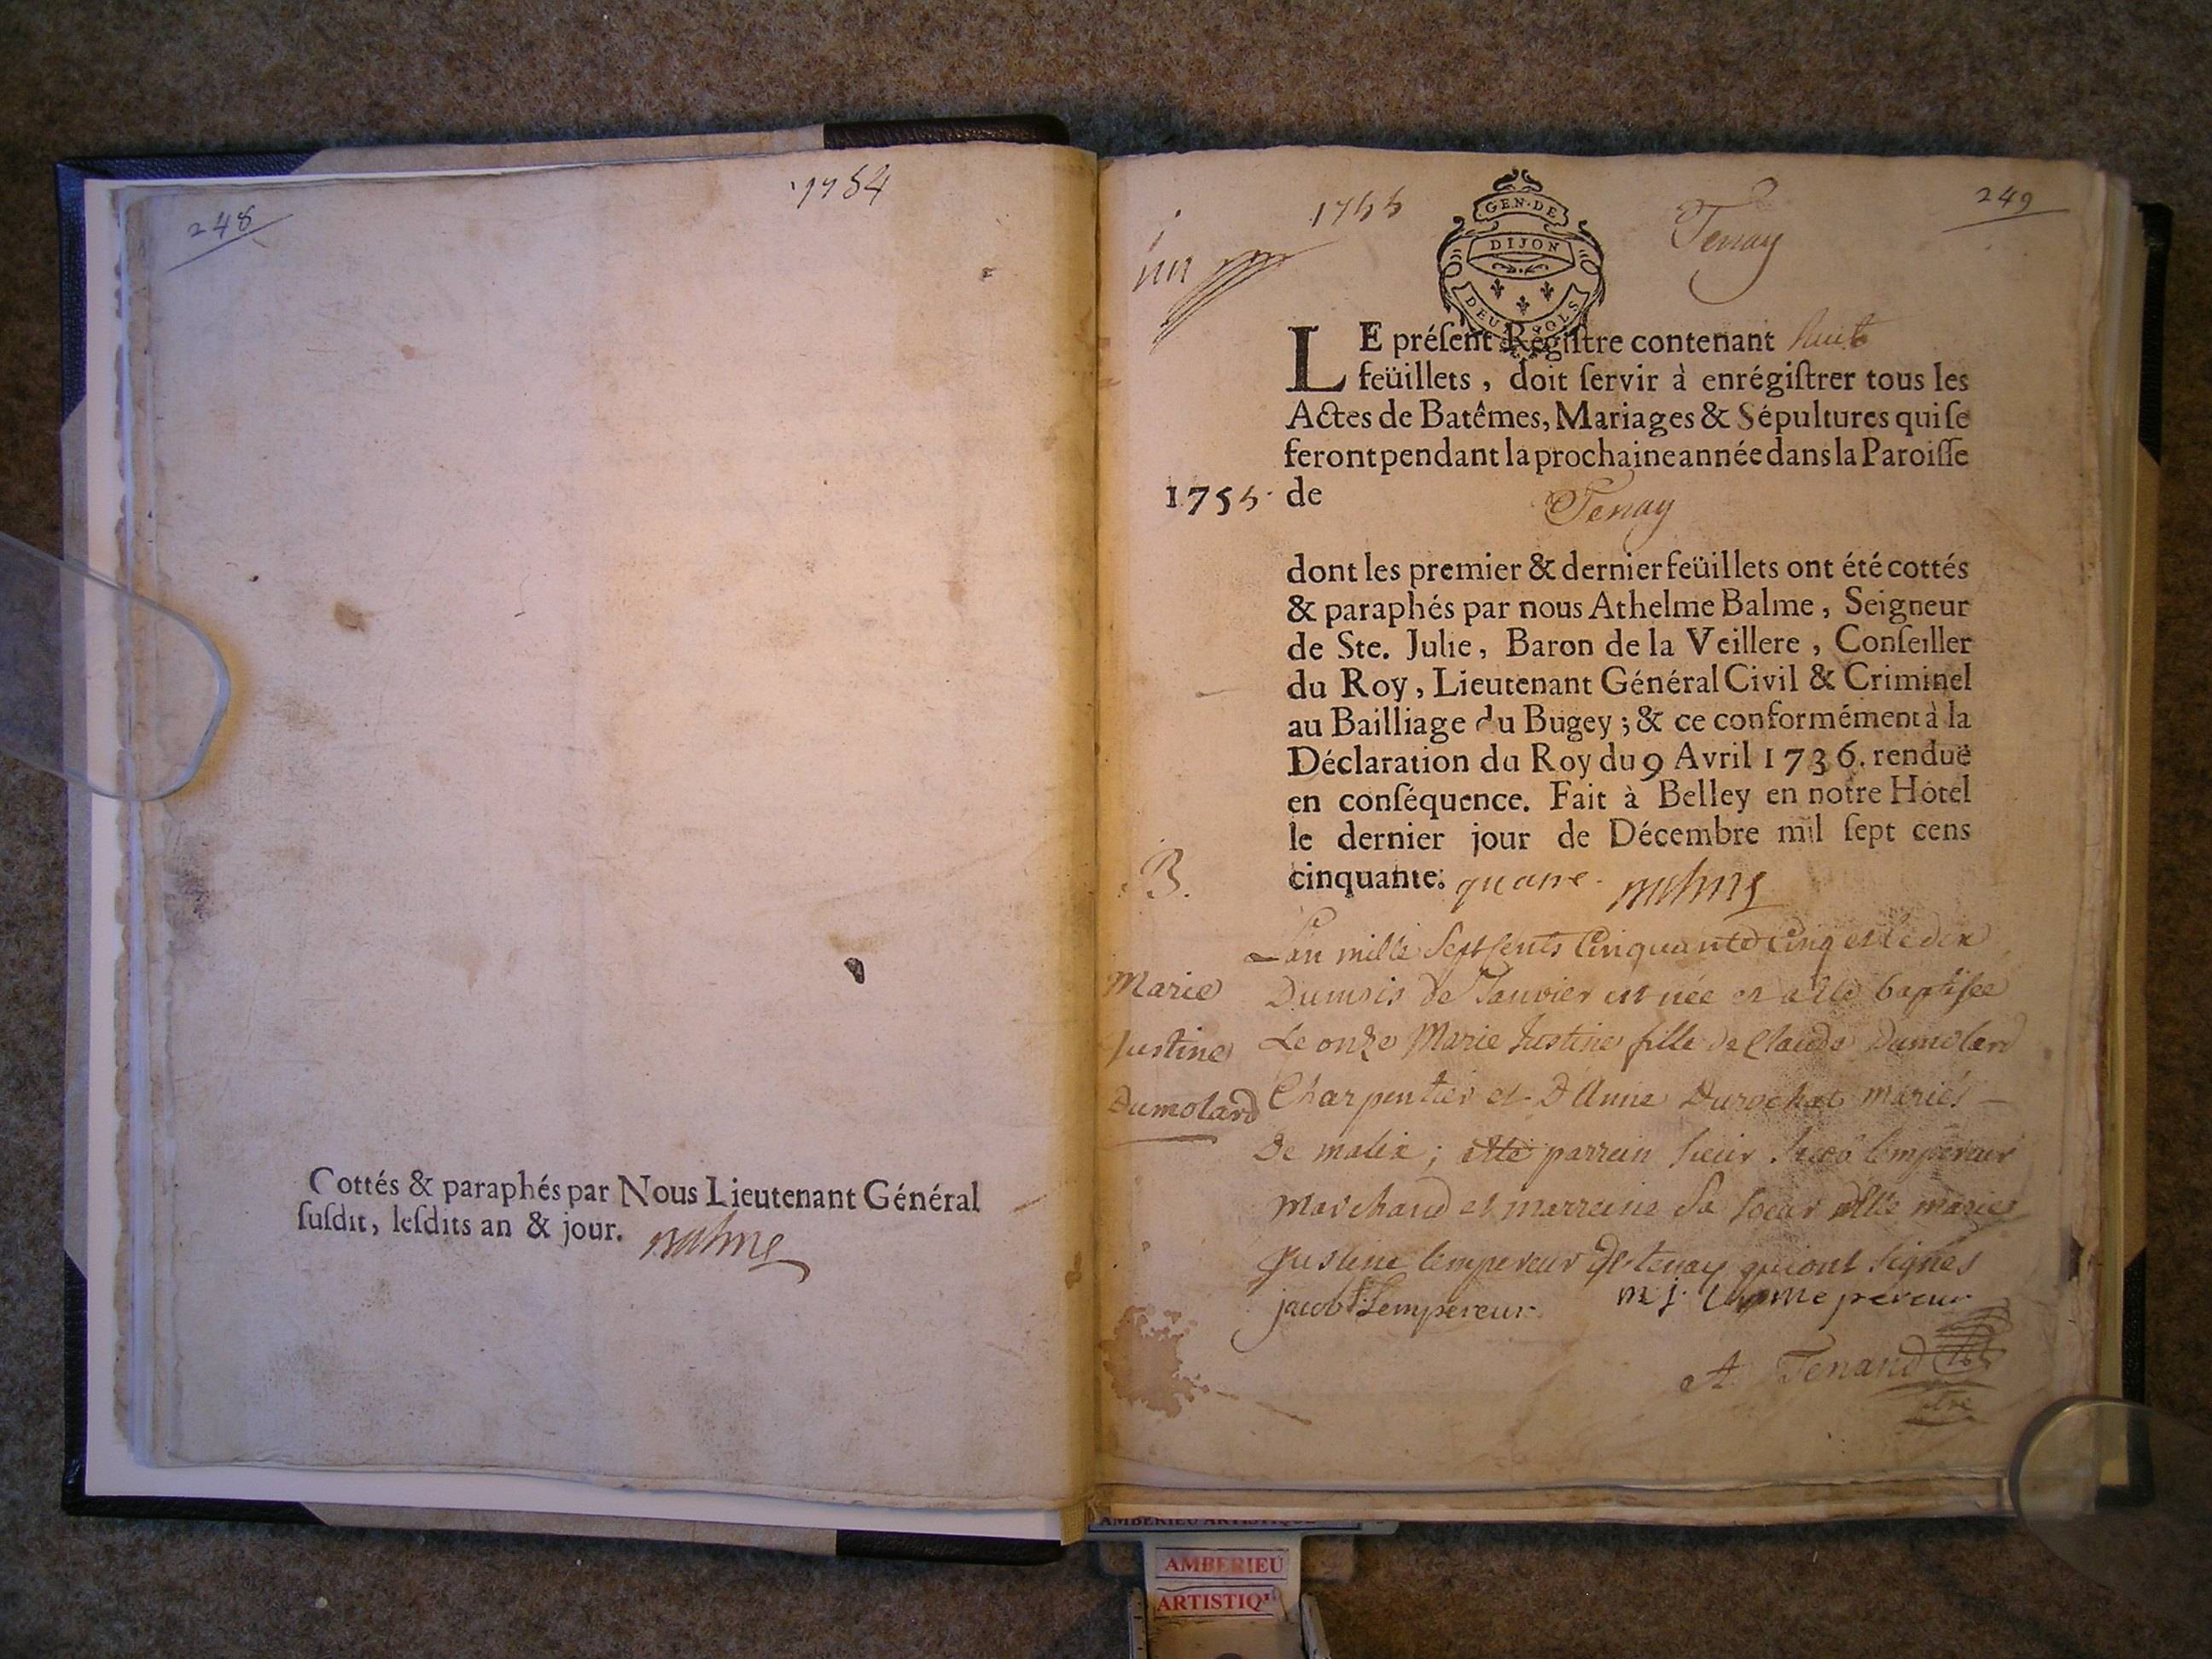 248
1754
Cottés & paraphés par Nous Lieutenant Général
suſdit, leſdits an & jour. Balme
1755
GEN·DE
DIJON
DEUX SOLS
Tenay
249
un
LE préſent Régiſtre contenant huit
feüillets, doit ſervir à enrégiſtrer tous les
Actes de Batêmes, Mariages & Sépultures qui ſe
feront pendant la prochaine année dans la Paroiſſe
1755. de Tenay
dont les premier & dernier feüillets ont été cottés
& paraphés par nous Athelme Balme, Seigneur
de Ste. Julie, Baron de la Veillere, Conſeiller
du Roy, Lieutenant Général Civil & Criminel
au Bailliage du Bugey; & ce conformément à la
Déclaration du Roy du 9 Avril 1736. renduë
en conſéquence. Fait à Belley en notre Hôtel
le dernier jour de Décembre mil ſept cens
cinquante. quatre. Balme
B.
Marie
Justine
Dumolard
L'an mille sept sents Cinquante Cinq et le dix
Du mois de Janvier est née et a été baptisée
Le onze Marie Justine fille de Claude Dumolard
Charpentier et D'Anne Durochat mariés
De malix; parrain sieur Jacob lempereur
Marchand et marraine sa soeur dlle marie
Justine lempereur de tenay qui ont signés
jacob Lempereur m j. Lempereur
A. Tenand
AMBERIEU ARTISTIQUE
AMBERIEU
ARTISTIQU